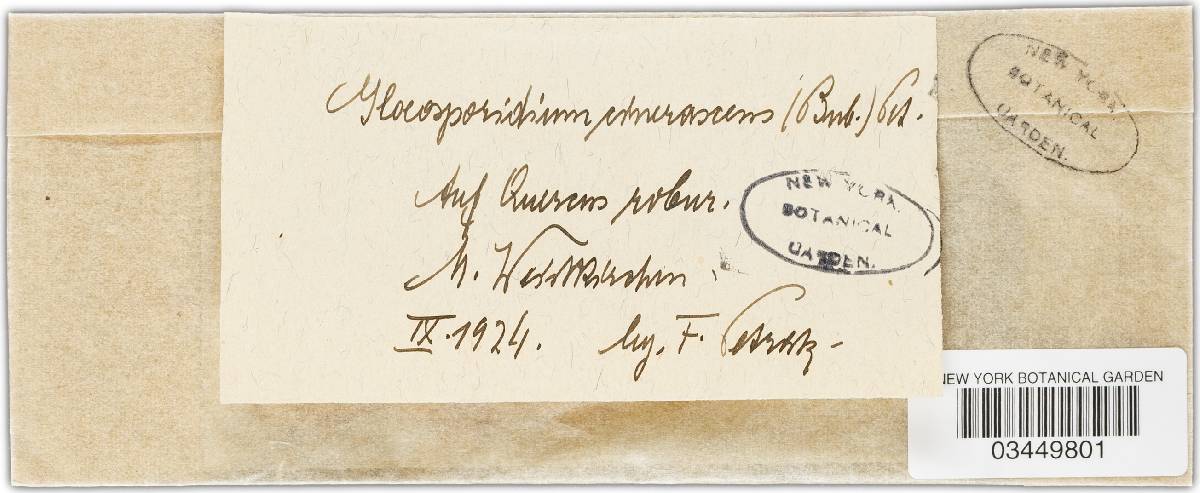 Gloeosporidium cinerascens (Bub.) Pet.
Auf Quercus robur.
M. Weisskirchen
IX.1924. leg. F. Petrak
NEW YORK
BOTANICAL
GARDEN.
NEW YORK.
BOTANICAL
GARDEN.
NEW YORK BOTANICAL GARDEN
03449801